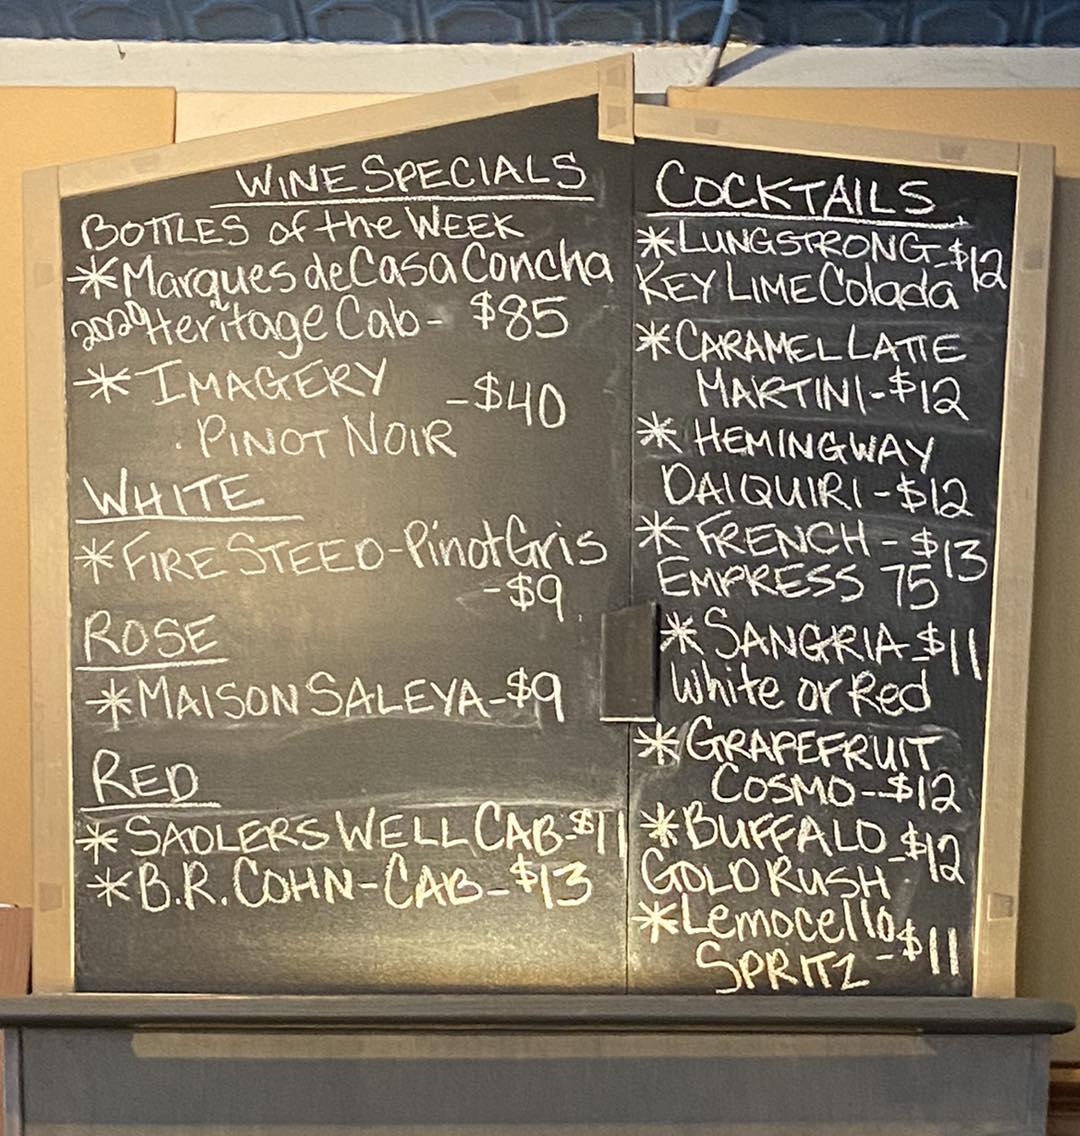 WINE SPECIALS
BOTTLES of the WEEK
*Marques de Casa Concha
2020 Heritage Cab - $85
* IMAGERY
PINOT NOIR - $40
WHITE
* FIRE STEED - Pinot Gris
- $9
ROSE
* MAISON SALEYA - $9
RED
* SADLERS WELL CAB - $11
* B.R. COHN - CAB - $13
COCKTAILS
* LUNGSTRONG - $12
KEY LIME Colada
* CARAMEL LATTE
MARTINI - $12
* HEMINGWAY
DAIQUIRI - $12
* FRENCH - $13
EMPRESS 75
* SANGRIA - $11
White or Red
* GRAPEFRUIT
COSMO -- $12
* BUFFALO - $12
GOLD RUSH
* Lemocello
SPRITZ - $11